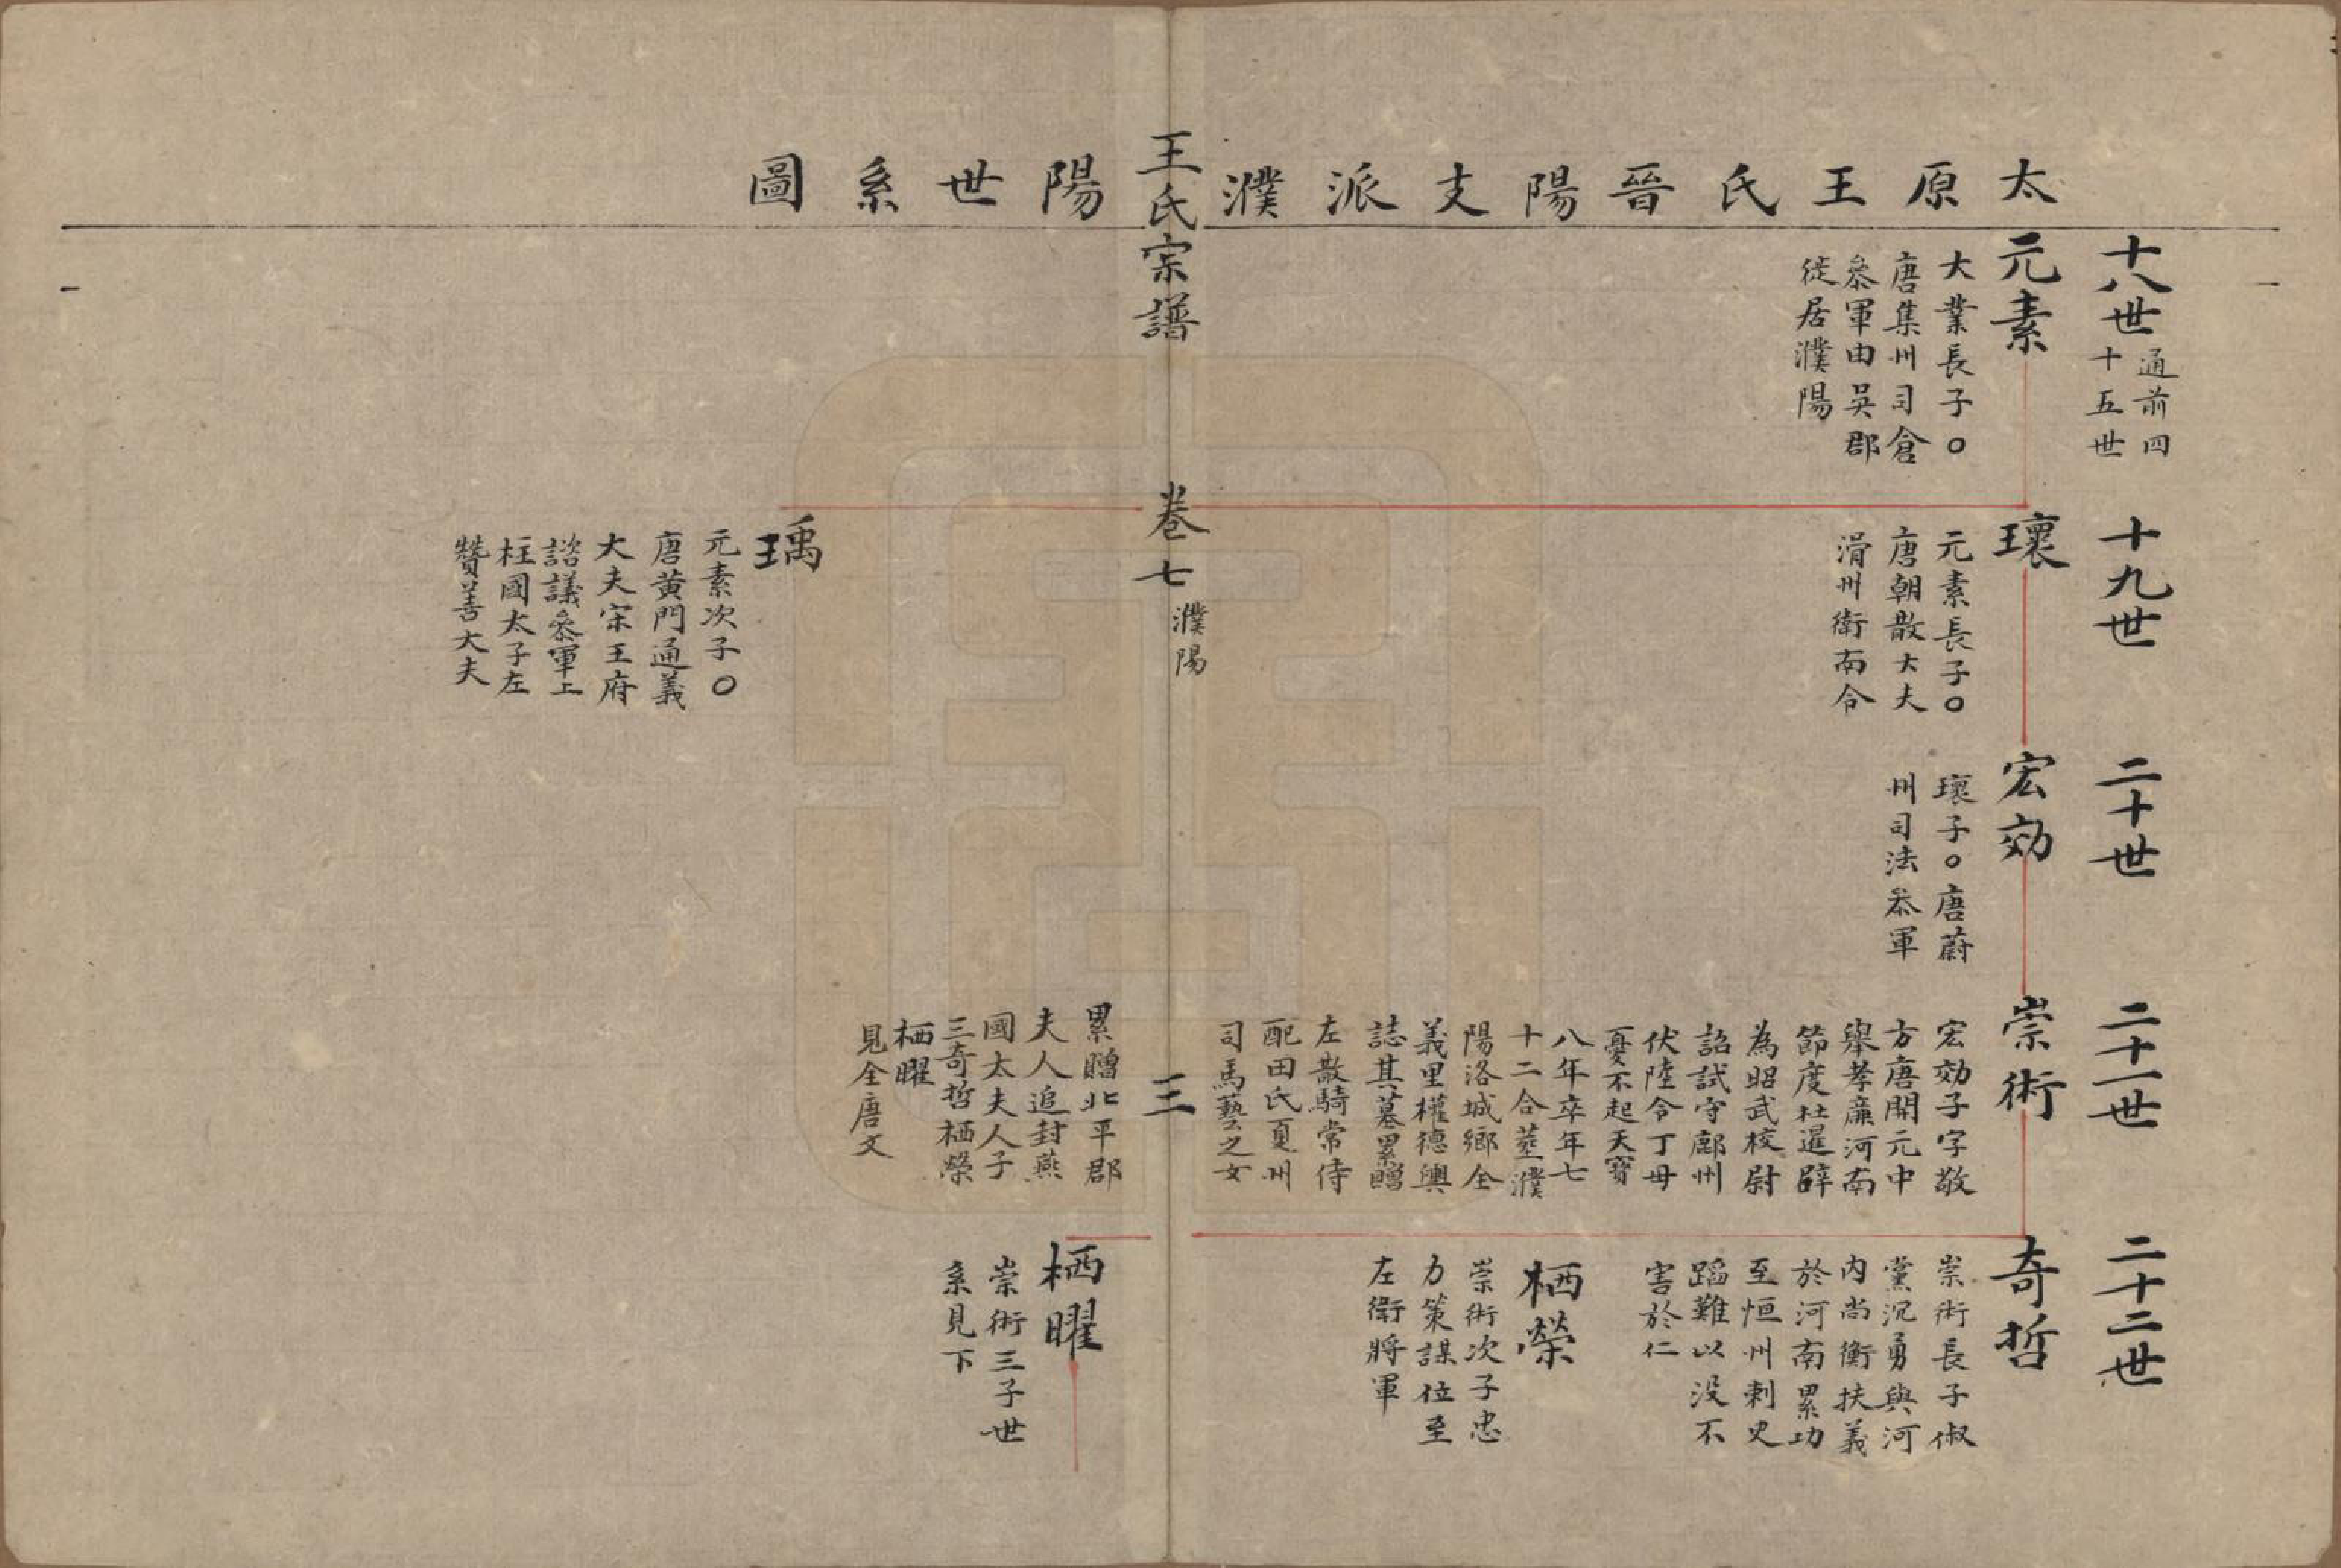 太原王氏晉陽支派濮陽世系圖
王氏宗譜
卷七
濮陽
三
十八世
通前四
十五世
元素
大業長子○
唐集州司倉
叅軍由吳郡
徙居濮陽
十九世
瓌
元素長子○
唐朝散大夫
滑州衛南令
瑀
元素次子○
唐黃門通義
大夫宋王府
諮議叅軍上
柱國太子左
贊善大夫
二十世
宏効
瓌子○唐蔚
州司法叅軍
二十一世
崇術
宏効子字敬
方唐開元中
舉孝廉河南
節度杜暹辟
為昭武校尉
詔試守鄜州
伏陸令丁母
憂不起天寶
八年卒年七
十二合塟濮
陽洛城鄉全
義里權德輿
誌其墓累贈
左散騎常侍
配田氏夏州
司馬藝之女
累贈北平郡
夫人追封燕
國太夫人子
三奇哲栖榮
栖曜
見全唐文
二十二世
奇哲
崇術長子俶
黨沉勇與河
內尚衡扶義
於河南累功
至恒州刺史
蹈難以沒不
害於仁
栖榮
崇術次子忠
力策謀位至
左衛將軍
栖曜
崇術三子世
系見下